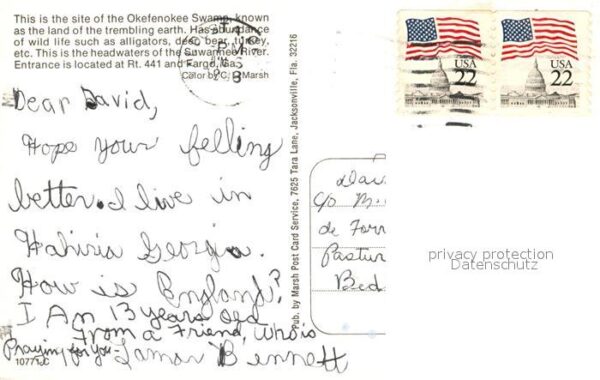 This is the site of the Okefenokee Swamp, known
as the land of the trembling earth. Has abundance
of wild life such as alligators, deer, bear, turkey,
etc. This is the headwaters of the Suwannee River.
Entrance is located at Rt. 441 and Fargo, Ga.
Color by C. J. Marsh
PM
USA
22
USA
22
Dear David,
Hope your felling
better. I live in
Hahira Georgia.
How is England?
I Am 13 years old
From a Friend, who is
Praying for you - Lamar Bennett
10771-C
Pub. by Marsh Post Card Service, 7625 Tara Lane, Jacksonville, Fla. 32216
Dav
c/o M.
de Forr
Pastur
Bed
privacy protection
Datenschutz